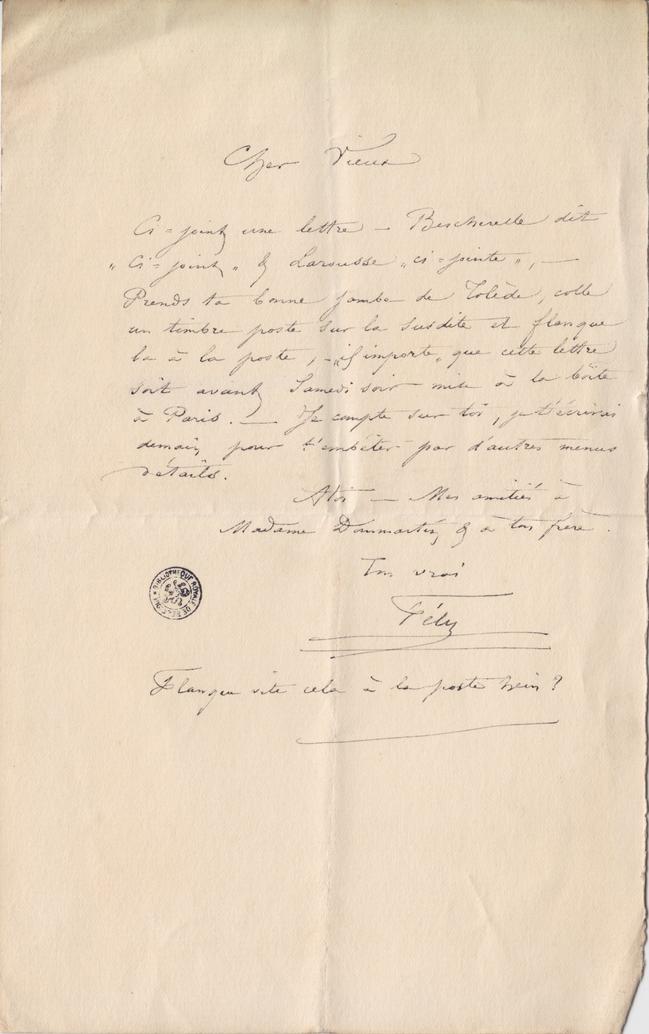 Cher Vieux
Ci=joint une lettre – Bescherelle dit
„ Ci=joint „ & Larousse „ ci=jointe „, —
Prends ta bonne jambe de Tolède, colle
un timbre poste sur la susdite et flanque
la à la poste, – „ il importe „ que cette lettre
soit avant Samedi soir mise à la boîte
à Paris. — Je compte sur toi, je t'écrirai
demain pour t'embéter par d'autres menus
détails.
A toi — Mes amitiés à
Madame Dommartin & à ton frère.
Ton vrai
Fély
BIBLIOTHÈQUE ROYALE DE BELGIQUE
Flanque vite cela à la poste hein ?